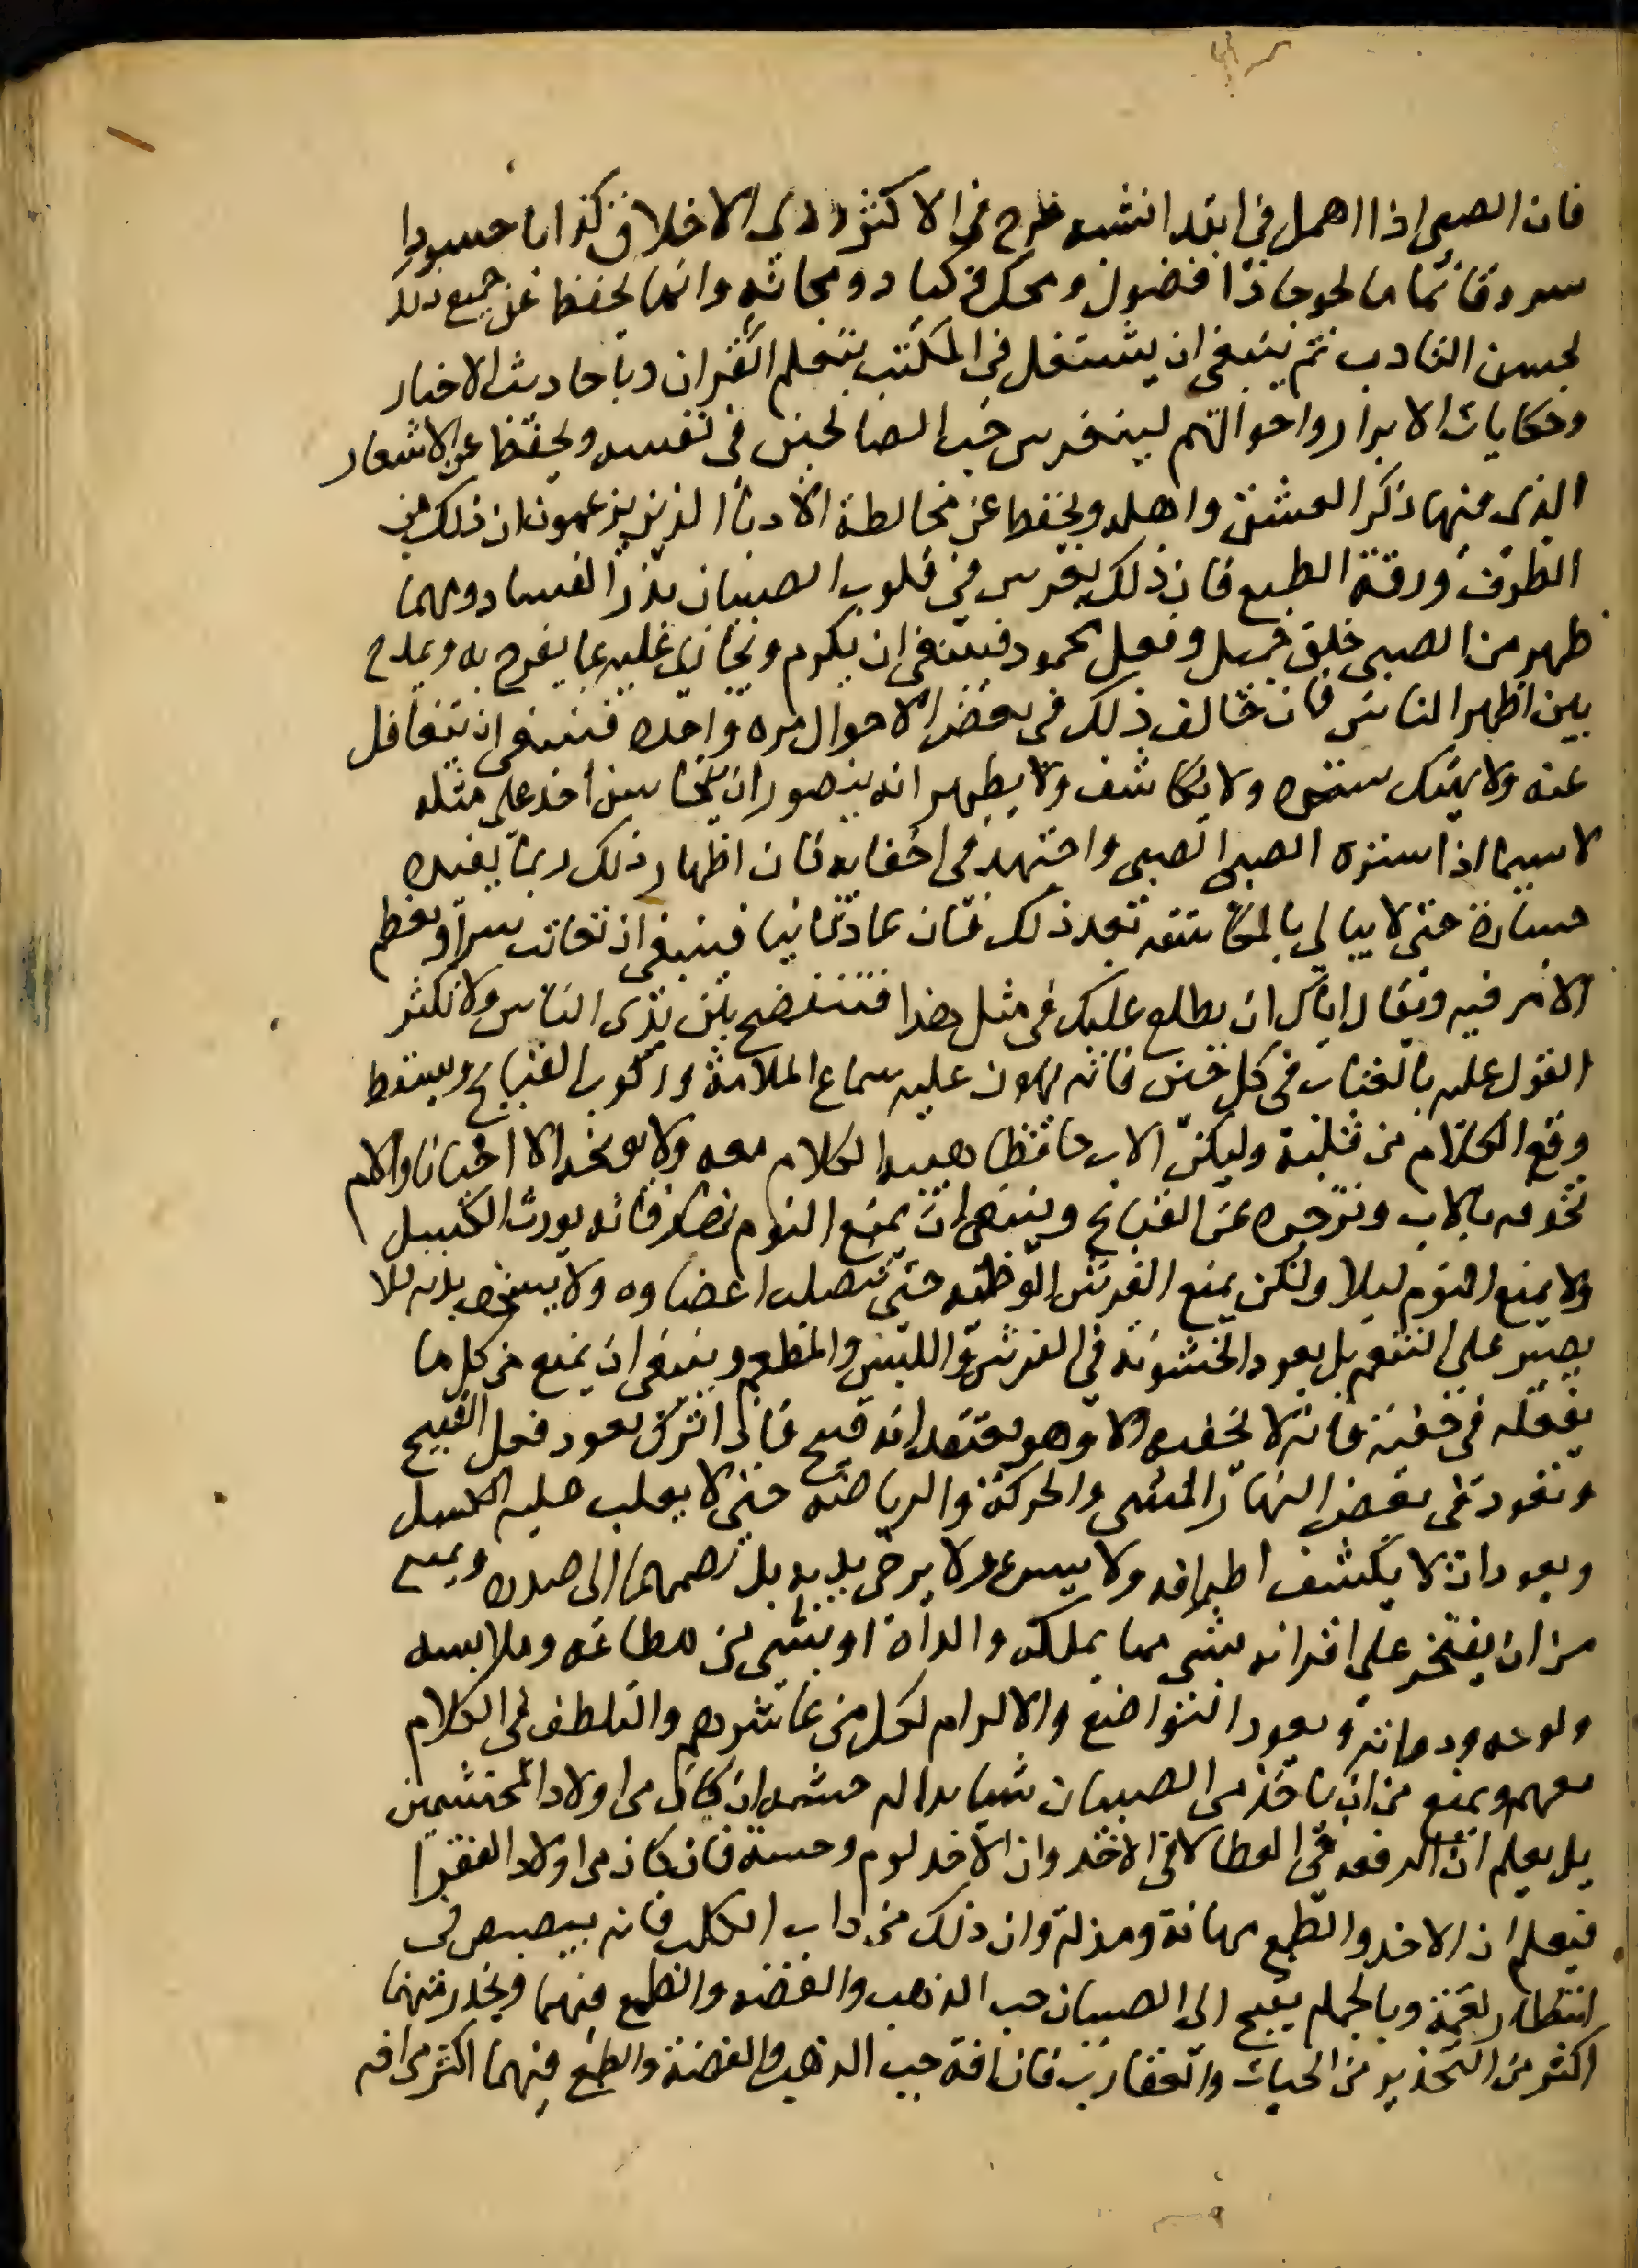 فان الصبى اذا اهمل فى ابتدا نشه خرج فى الاكثر ردى الاخلاق كذابا حسودا
سروقا نماما لحوحا ذا فضول وضحك وكياد ومجانه وانما يحفظ عن جميع ذلك
بحسن التاديب ثم ينبغى ان يشتغل فى المكتب بتعلم القران وباحاديث الاخبار
وحكايات الابرار واحوالهم لينغرس حب الصالحين فى نفسه ويحفظ عن الاشعار
الذى فيها ذكر العشق واهله ويحفظ عن مخالطة الادبا الذين يزعمون ان ذلك من
الظرف ورقة الطبع فان ذلك يغرس فى قلوب الصبيان بذر الفساد ومهما
ظهر من الصبى خلق جميل وفعل محمود فينبغى ان يكرم ويجازى عليه بما يفرح به ويمدح
بين اظهر الناس فان خالف ذلك فى بعض الاحوال مره واحده فينبغى ان يتغافل
عنه ولا يهتك ستره ولا يكاشف ولا يظهر انه يتصور ان يتجاسر احد على مثله
لاسيما اذا ستره الصبى الصبى واجتهد فى اخفايه فان اظهار ذلك ربما يفيده
جسارة حتى لا يبالى بالمكاشفه بعد ذلك فان عاد ثانيا فينبغى ان يعاتب سرا ويعظم
الامر فيه ويقال اياك ان يطلع عليك فى مثل هذا فتفتضح بين يدى الناس ولا تكثر
القول عليه بالعتاب فى كل حين فانه يهون عليه سماع الملامة وركوب القبايح ويسقط
وقع الكلام من قلبه وليكن الاب حافظا هيبه الكلام معه ولا يوبخه الا احيانا والام
تخوفه بالاب وتزجره عن القبايح وينبغى ان يمنع النوم نهارا فانه يورث الكسل
ولا يمنع النوم ليلا ولكن يمنع الفرش الوطيه حتى تتصلب اعضاوه ولا يسخف بدنه فلا
يصبر على التنعم بل يعود الخشونه فى الفرش والملبس والمطعم وينبغى ان يمنع من كل ما
يفعله فى خفية فانه لا يخفيه الا وهو يعتقد انه قبيح فاذا ترك تعود فعل القبيح
ويعود فى بعض النهار المشى والحركة والرياضه حتى لا يغلب عليه الكسل
ويعود ان لا يكشف اطرافه ولا يسرع ولا يرخى يديه بل يضمهما الى صدره ويمنع
من ان يفتخر على اقرانه بشى مما يملكه والداه او بشى من مطاعمه وملابسه
ولوحه ودواته ويعود التواضع والاكرام لكل من عاشره والتلطف فى الكلام
معهم ويمنع من ان ياخذ من الصبيان شيا بدا له حشمه ان كان من اولاد المحتشمين
بل يعلم ان الرفعه فى العطا لا فى الاخذ وان الاخذ لوم وخسة فان كان من اولاد الفقرا
فيعلم ان الاخذ والطمع مهانة ومذلة وان ذلك من داب الكلب فانه يبصبص فى
انتظار لقمة وبالجمله يقبح الى الصبيان حب الذهب والفضه والطمع فيهما ويحذر منهما
اكثر من التحذير من الحيات والعقارب فان افة حب الذهب والفضة والطمع فيهما اكثر من افه